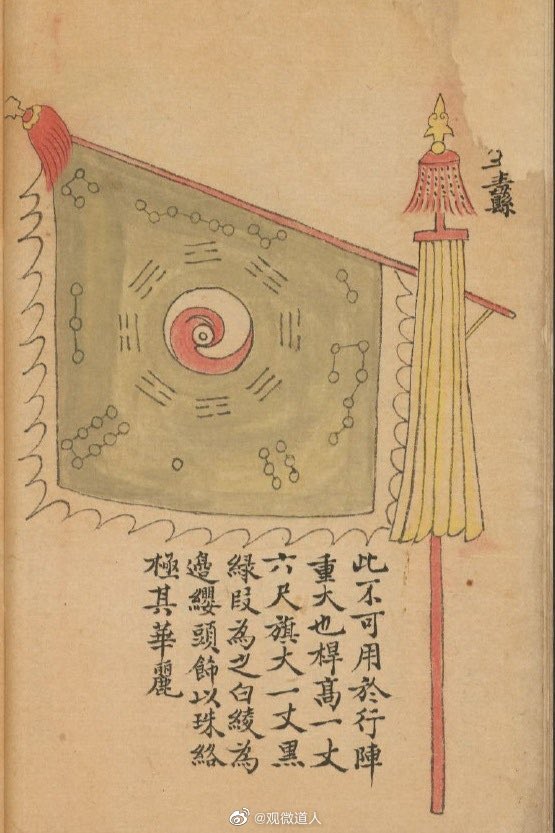 纛
此不可用於行陣
重大也桿高一丈
六尺旗大一丈黑
緑段為之白綾為
邊纓頭飾以珠絡
極其華麗
@观微道人